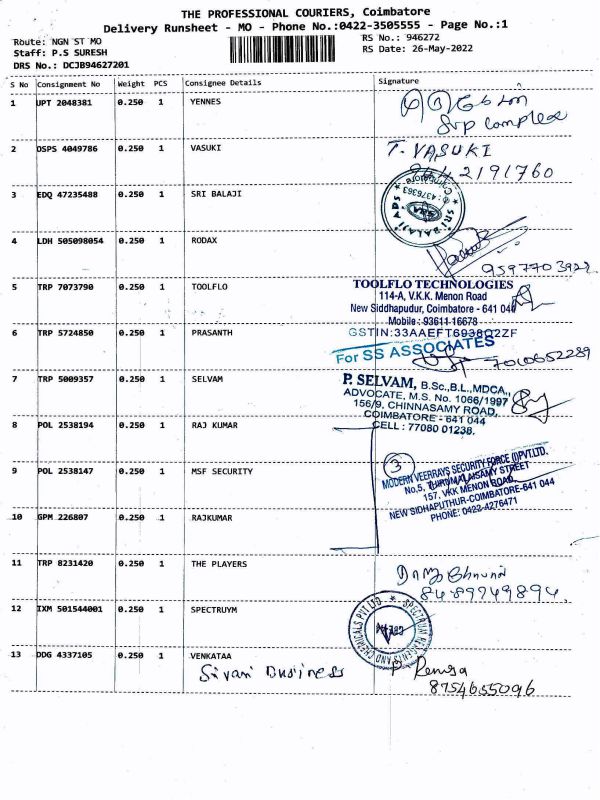 THE PROFESSIONAL COURIERS, Coimbatore
Delivery Runsheet - MO - Phone No.:0422-3505555 - Page No.:1
Route: NGN ST MO
RS No.: 946272
Staff: P.S SURESH
RS Date: 26-May-2022
DRS No.: DCJB94627201
S No Consignment No Weight PCS Consignee Details Signature
1 UPT 2048381 0.250 1 YENNES
Svp complex
2 DSPS 4049786 0.250 1 VASUKI T. VASUKI
2191760
3 EDQ 47235488 0.250 1 SRI BALAJI
SRI BALAJI ADS
4376363
4 LDH 505098054 0.250 1 RODAX
9597703922
5 TRP 7073790 0.250 1 TOOLFLO
TOOLFLO TECHNOLOGIES
114-A, V.K.K. Menon Road
New Siddhapudur, Coimbatore - 641 044
Mobile : 93611-16678
GSTIN:33AAEFT6938Q2ZF
6 TRP 5724850 0.250 1 PRASANTH
For SS ASSOCIATES
7010652289
7 TRP 5009357 0.250 1 SELVAM
P. SELVAM, B.Sc.,B.L.,MDCA.,
ADVOCATE, M.S. No. 1066/1997
156/9, CHINNASAMY ROAD,
COIMBATORE - 641 044
CELL : 77080 01238.
8 POL 2538194 0.250 1 RAJ KUMAR
9 POL 2538147 0.250 1 MSF SECURITY
3
MODERN VEERRAYS SECURITY FORCE (I) PVT.LTD.
No.5, THIRUMALAISAMY STREET
157, VKK MENON ROAD,
NEW SIDHAPUTHUR-COIMBATORE-641 044
PHONE: 0422-4276471
10 GPM 226807 0.250 1 RAJKUMAR
11 TRP 8231420 0.250 1 THE PLAYERS
8489749894
12 IXM 501544001 0.250 1 SPECTRUYM
SPECTRUM REAGENTS AND CHEMICALS PVT LTD
13 DDG 4337105 0.250 1 VENKATAA
Sivani Business
P Renuga
8754655096